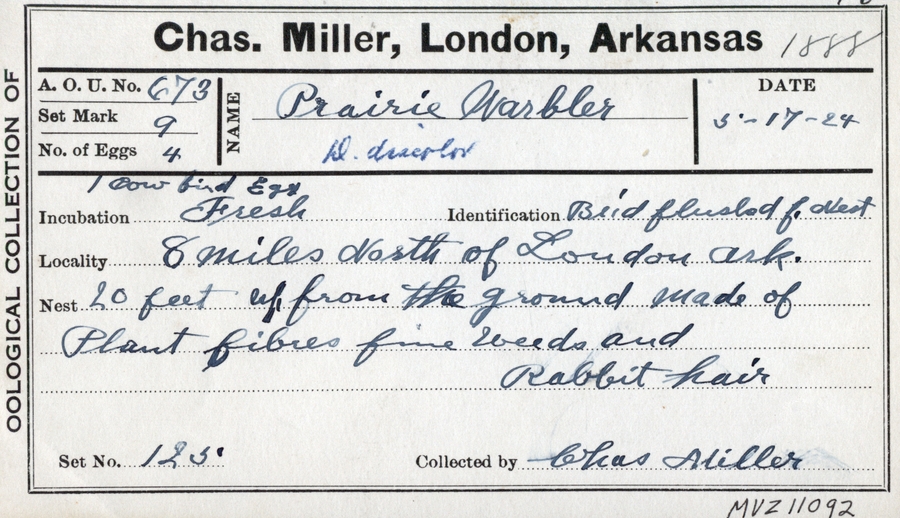 OOLOGICAL COLLECTION OF
Chas. Miller, London, Arkansas 1888
A. O. U. No. 673
Set Mark 9
No. of Eggs 4
NAME Prairie Warbler
D. discolor
DATE
5-17-24
1 Cow bird Egg
Incubation Fresh Identification Bird flushed f. Nest
Locality 8 miles North of London Ark.
Nest 20 feet up from the ground made of
Plant fibres fine Weeds and
Rabbit hair
Set No. 125 Collected by Chas Miller
MVZ 11092